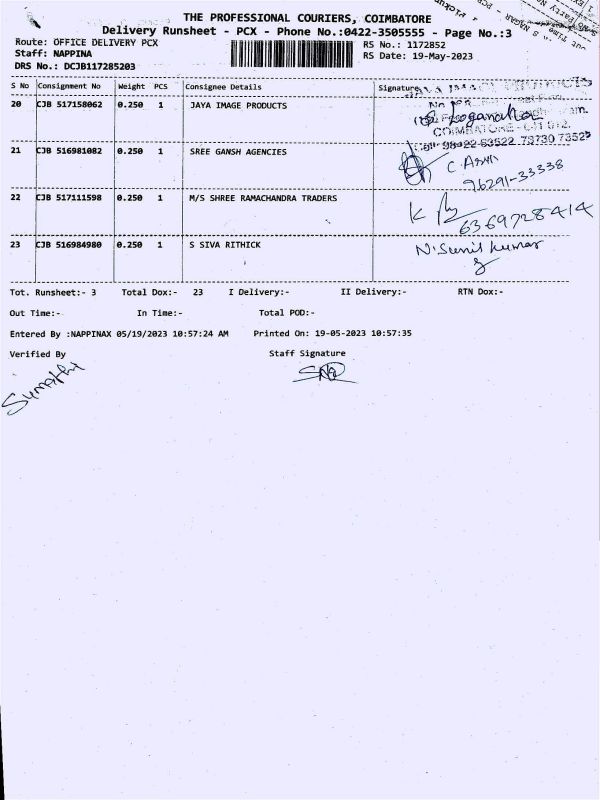 THE PROFESSIONAL COURIERS, COIMBATORE
Delivery Runsheet - PCX - Phone No.:0422-3505555 - Page No.:3
Route: OFFICE DELIVERY PCX
RS No.: 1172852
Staff: NAPPINA
RS Date: 19-May-2023
DRS No.: DCJB117285203
S No Consignment No Weight PCS Consignee Details Signature
20 CJB 517158062 0.250 1 JAYA IMAGE PRODUCTS
COIMBATORE
21 CJB 516981082 0.250 1 SREE GANSH AGENCIES
96291-33338
22 CJB 517111598 0.250 1 M/S SHREE RAMACHANDRA TRADERS
6369728414
23 CJB 516984980 0.250 1 S SIVA RITHICK
N. Sunil kumar
Tot. Runsheet:- 3 Total Dox:- 23 I Delivery:- II Delivery:- RTN Dox:-
Out Time:- In Time:- Total POD:-
Entered By :NAPPINAX 05/19/2023 10:57:24 AM Printed On: 19-05-2023 10:57:35
Verified By Staff Signature
Sumathi